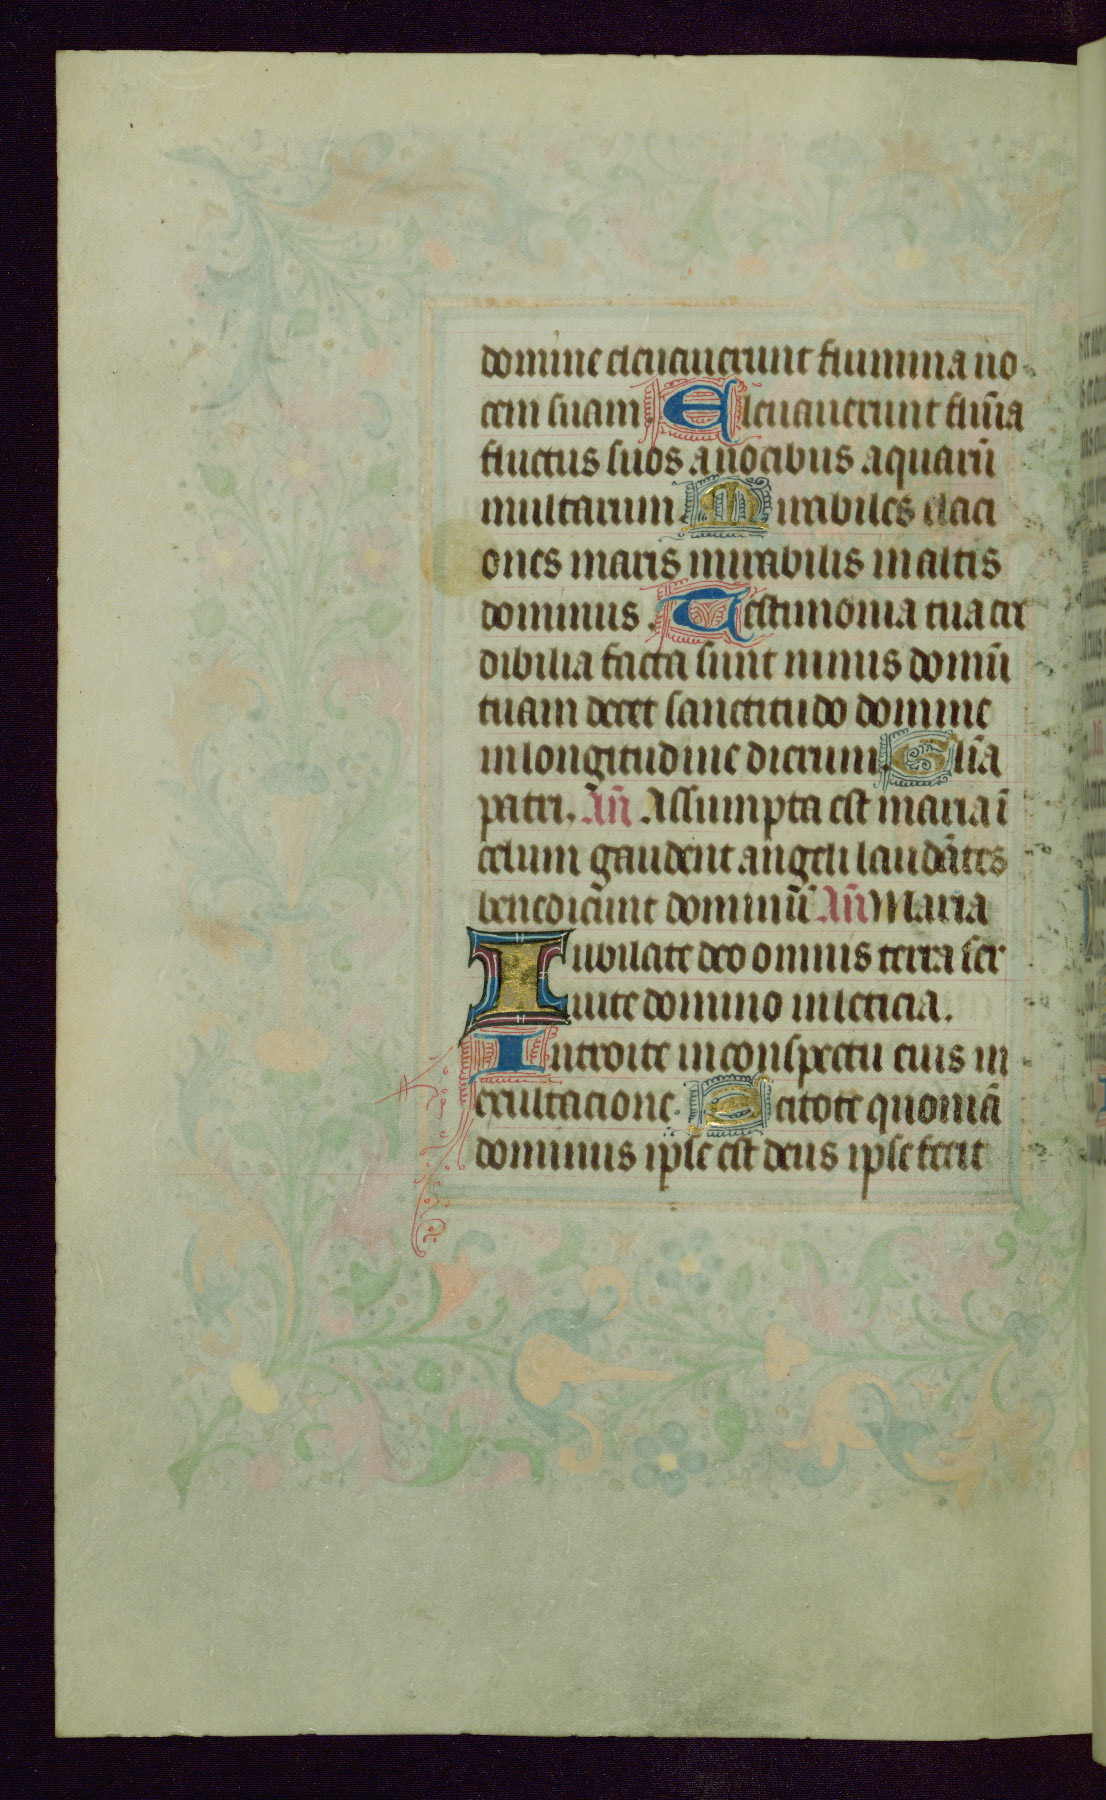 domine eleuauerunt flumina uo
cem suam. Eleuauerunt flūia
fluctus suos a uocibus aquarū
multarum Mirabiles elaci
ones maris mirabilis in altis
dominus. Testimonia tua cre
dibilia facta sunt nimis domū
tuam decet sanctitudo domine
in longitudine dierum. Glīa
patri. Añ Assumpta est maria ī
celum gaudent angeli laudātes
benedicūnt dominū Añ Maria
Iubilate deo omnis terra ser
uite domino in leticia.
Introite in conspectu eius in
exultacione. Scitote quoniā
dominus ipse est deus ipse fecit